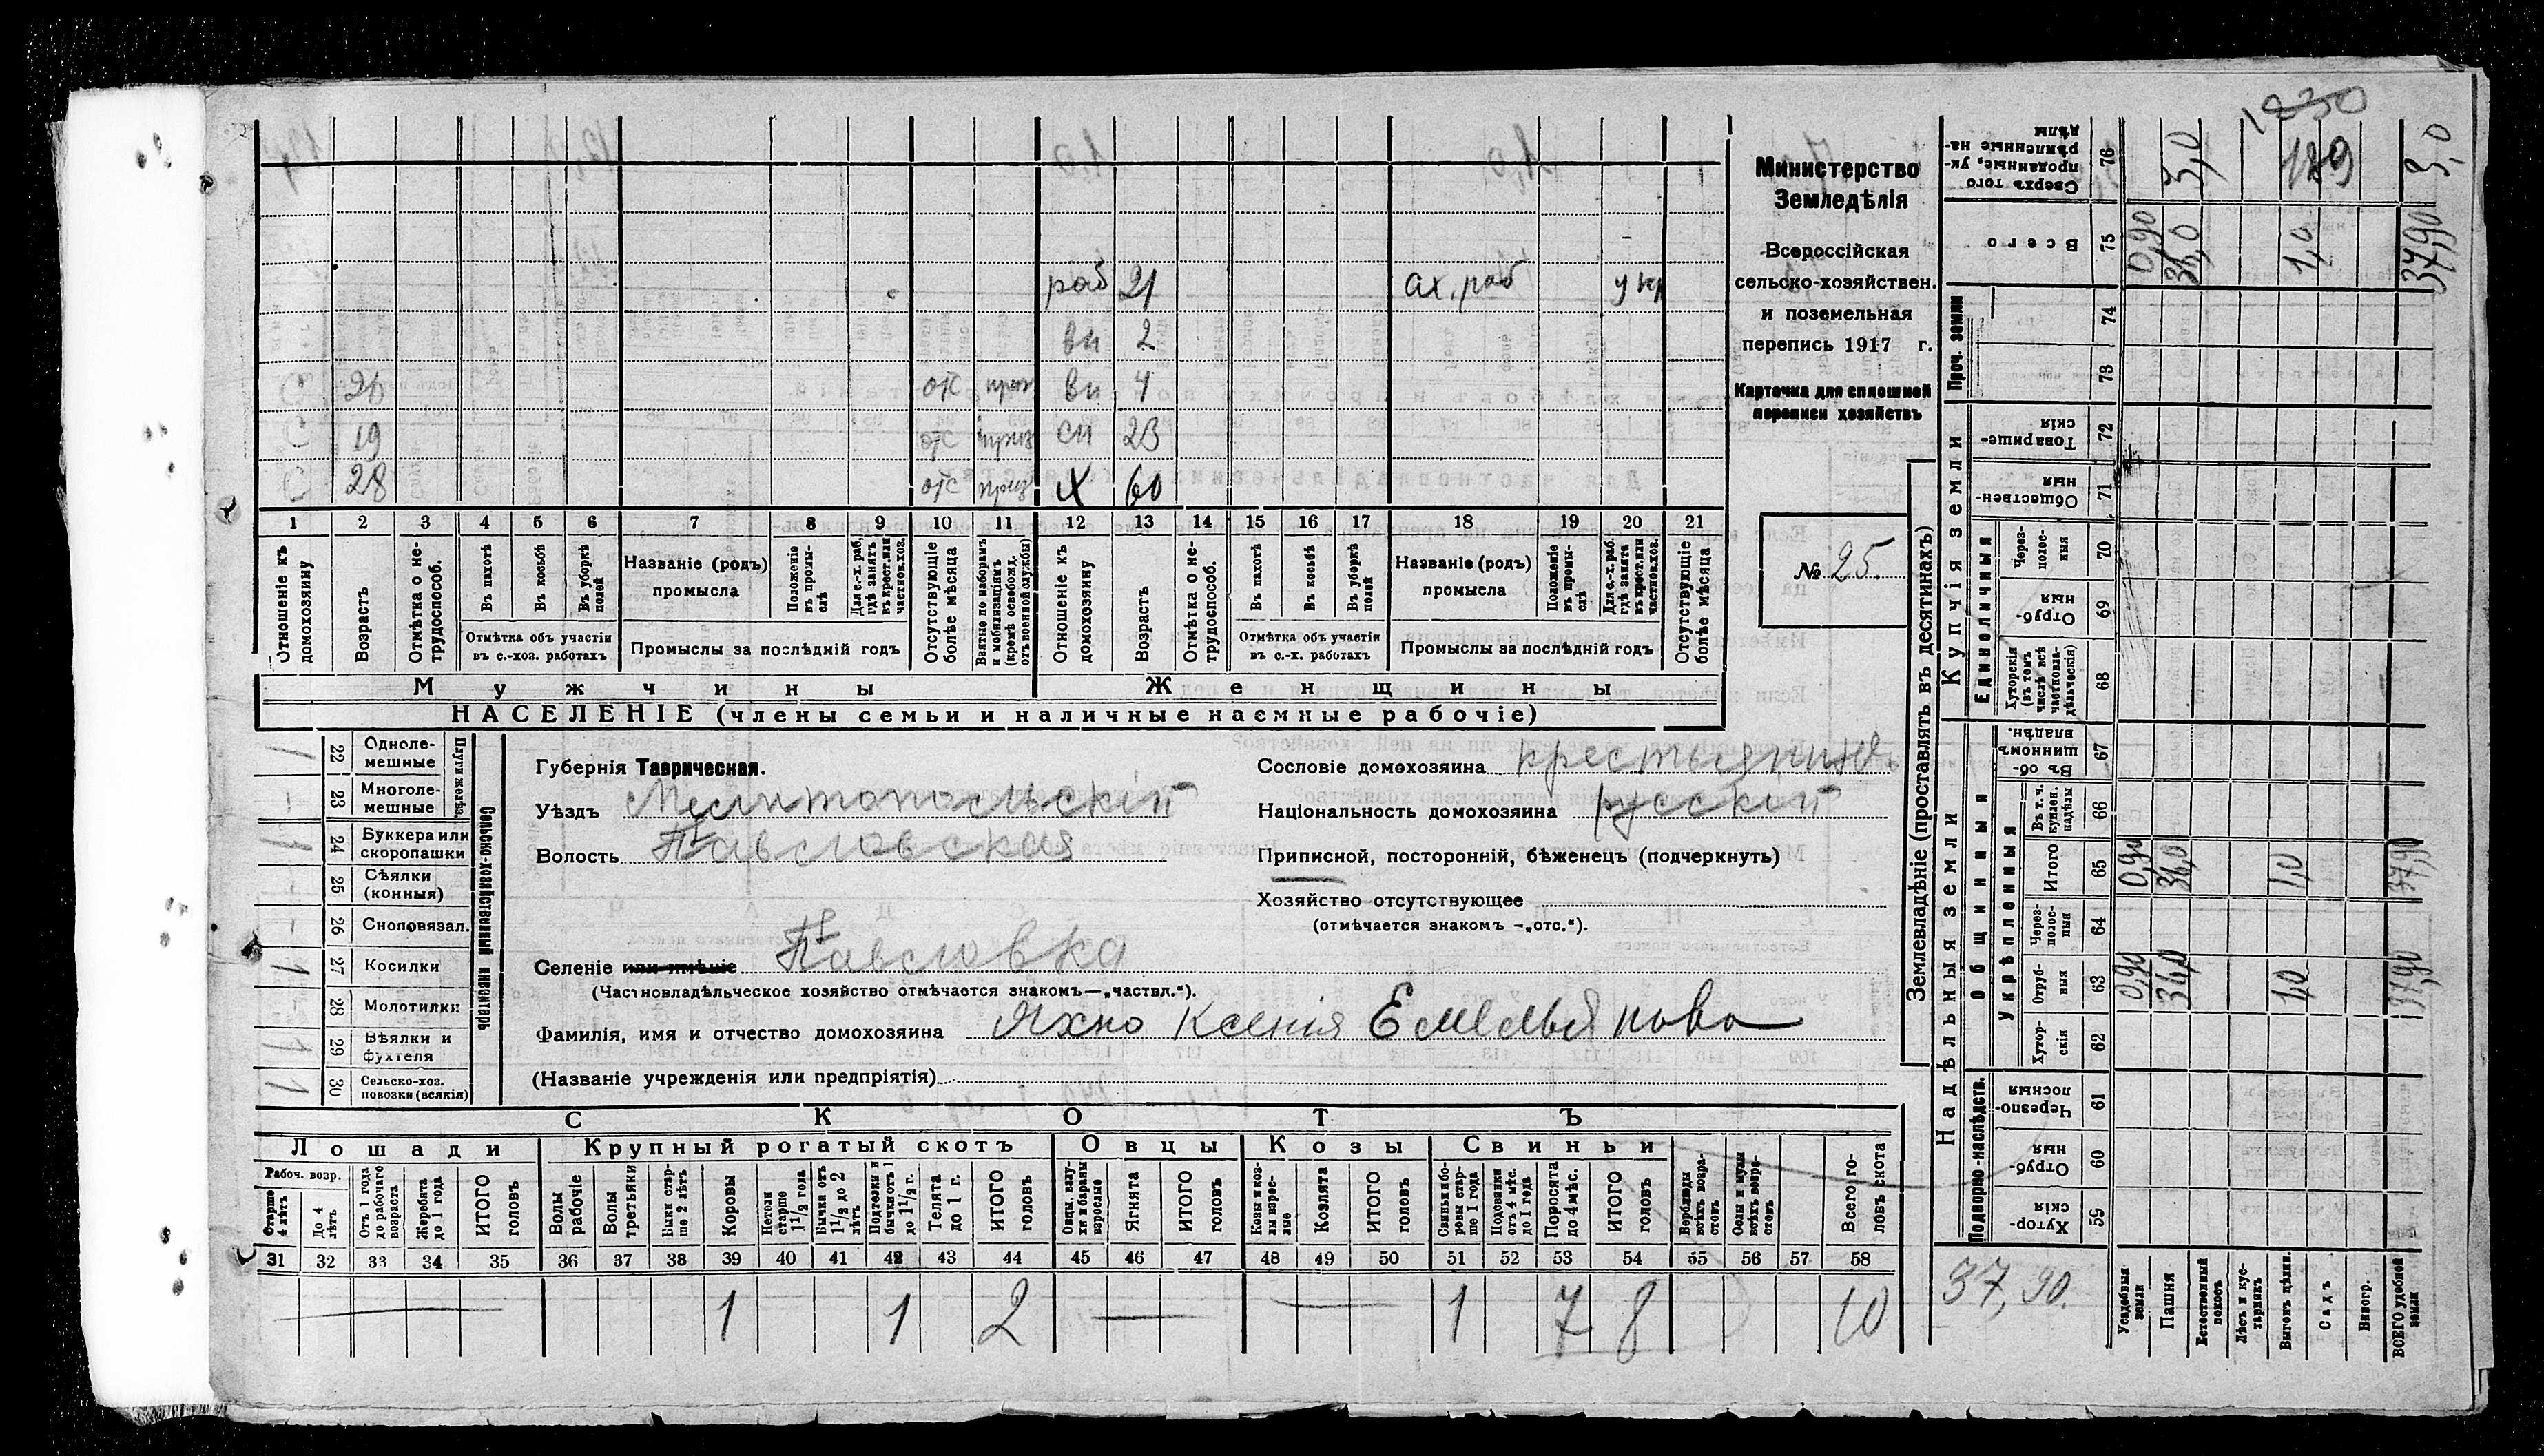 1230
раб 21 сх. раб у кр
вн 2
С 26 отс приз вн 4
С 19 отс приз сн 23
С 28 отс приз Х 60
1 2 3 4 5 6 7 8 9 10 11 12 13 14 15 16 17 18 19 20 21
Отношеніе къ домохозяину
Возрастъ
Отмѣтка о нетрудоспособ.
Въ пахотѣ
Въ косьбѣ
Въ уборкѣ полей
Отмѣтка объ участіи
въ с.-хоз. работахъ
Названіе (родъ)
промысла
Положеніе въ промыслѣ
Для с.-х. раб. гдѣ занятъ въ крест. или частновл. хоз.
Промыслы за послѣдній годъ
Отсутствующіе болѣе мѣсяца
Взятые по наборамъ и мобилизаціямъ (кромѣ освобожд. отъ военной службы)
Отношеніе къ домохозяину
Возрастъ
Отмѣтка о нетрудоспособ.
Въ пахотѣ
Въ косьбѣ
Въ уборкѣ полей
Отмѣтка объ участіи
въ с.-х. работахъ
Названіе (родъ)
промысла
Положеніе въ промыслѣ
Для с.-х. раб. гдѣ занята въ крест. или частновл. хоз.
Промыслы за послѣдній годъ
Отсутствующіе болѣе мѣсяца
Мужчины Женщины
НАСЕЛЕНІЕ (члены семьи и наличные наемные рабочіе)
Министерство
Земледѣлія
Всероссійская
сельско-хозяйствен.
и поземельная
перепись 1917 г.
Карточка для сплошной
переписи хозяйствъ
№ 25.
Сельско-хозяйственный инвентарь
Плуги желѣз.
1 22 Однолемешные
- 23 Многолемешные
1 24 Буккера или скоропашки
- 25 Сѣялки (конныя)
- 26 Сноповязал.
1 27 Косилки
- 28 Молотилки
1 29 Вѣялки и фухтеля
1 30 Сельско-хоз. повозки (всякія)
Губернія Таврическая.
Уѣздъ Мелитопольскій
Волость Павловская
Селеніе или имѣніе Павловка
(Частновладѣльческое хозяйство отмѣчается знакомъ—„частвл.“).
Фамилія, имя и отчество домохозяина Яхно Ксенія Емельянова
(Названіе учрежденія или предпріятія)
Сословіе домохозяина крестьянинъ
Національность домохозяина русскій
Приписной, посторонній, бѣженецъ (подчеркнуть)
Хозяйство отсутствующее
(отмѣчается знакомъ —„отс.“).
СКОТЪ
Лошади Крупный рогатый скотъ Овцы Козы Свиньи
Рабоч. возр.
Старше 4 лѣтъ
До 4 лѣтъ
Отъ 1 года до рабочаго возраста
Жеребята до 1 года
ИТОГО головъ
Волы рабочіе
Волы третьяки
Быки старше 2 лѣтъ
Коровы
Нетели старше 1 1/2 года
Бычки отъ 1 1/2 до 2 лѣтъ
Подтелки и бычки отъ 1 до 1 1/2 г.
Телята до 1 г.
ИТОГО головъ
Овцы, валухи и бараны взрослые
Ягнята
ИТОГО головъ
Козы и козлы взрослые
Козлята
ИТОГО головъ
Свиньи и боровы старше 1 года
Подсвинки отъ 4 мѣс. до 1 года
Поросята до 4 мѣс.
ИТОГО головъ
Верблюды всѣхъ возрастовъ
Ослы и мулы всѣхъ возрастовъ
Всего головъ скота
31 32 33 34 35 36 37 38 39 40 41 42 43 44 45 46 47 48 49 50 51 52 53 54 55 56 57 58
1 1 2 1 7 8 10
Землевладѣніе (проставлять въ десятинахъ)
Надѣльныя земли Купчія земли Проч. земли
Подворно-наслѣдств.
Общинныя
Укрѣпленныя
Единоличныя
Хуторскія 59
Отрубныя 60
Черезполосныя 61
Хуторскія 62
Отрубныя 63 0,90 36,0 1,0 37,90
Черезполосныя 64
Итого 65 0,90 36,0 1,0 37,90
Въ т. ч. куплен. надѣлы 66
Въ общинномъ владѣн. 67
Хуторскія (въ томъ числѣ всѣ частновладѣльческія) 68
Отрубныя 69
Черезполосныя 70
Общественныя 71
Товарищескія 72
73
74
Всего 75 0,90 36,0 1,0 37,90
Сверхъ того проданные, укрѣпленные надѣлы 76 3,0 189 3,0
37,90.
Усадебныя земли
Пашня
Естественный покосъ
Лѣсъ и кустарникъ
Выгонъ цѣлин.
Садъ
Виногр.
ВСЕГО удобной земли